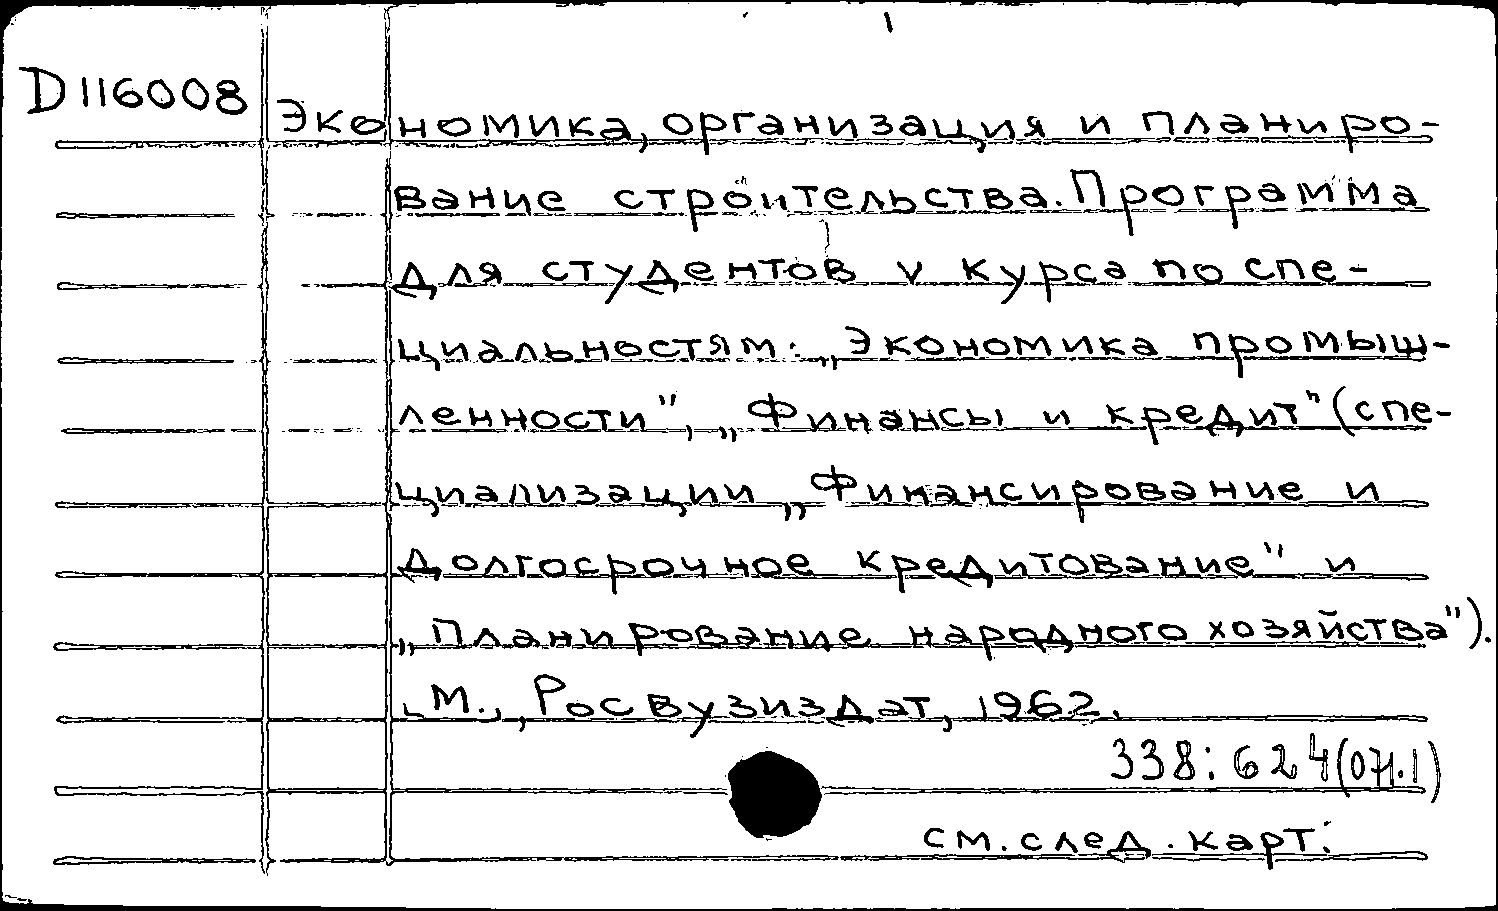 D116008 Экономика, организация и планиро-
вание строительства. Программа
для студентов V курса по спе-
циальностям: „Экономика промыш-
ленности", „Финансы и кредит" (спе-
циализации „Финансирование и
долгосрочное кредитование" и
„Планирование народного хозяйства").
[М.], Росвузиздат, 1962.
338:624(071.1)
см. след. карт.